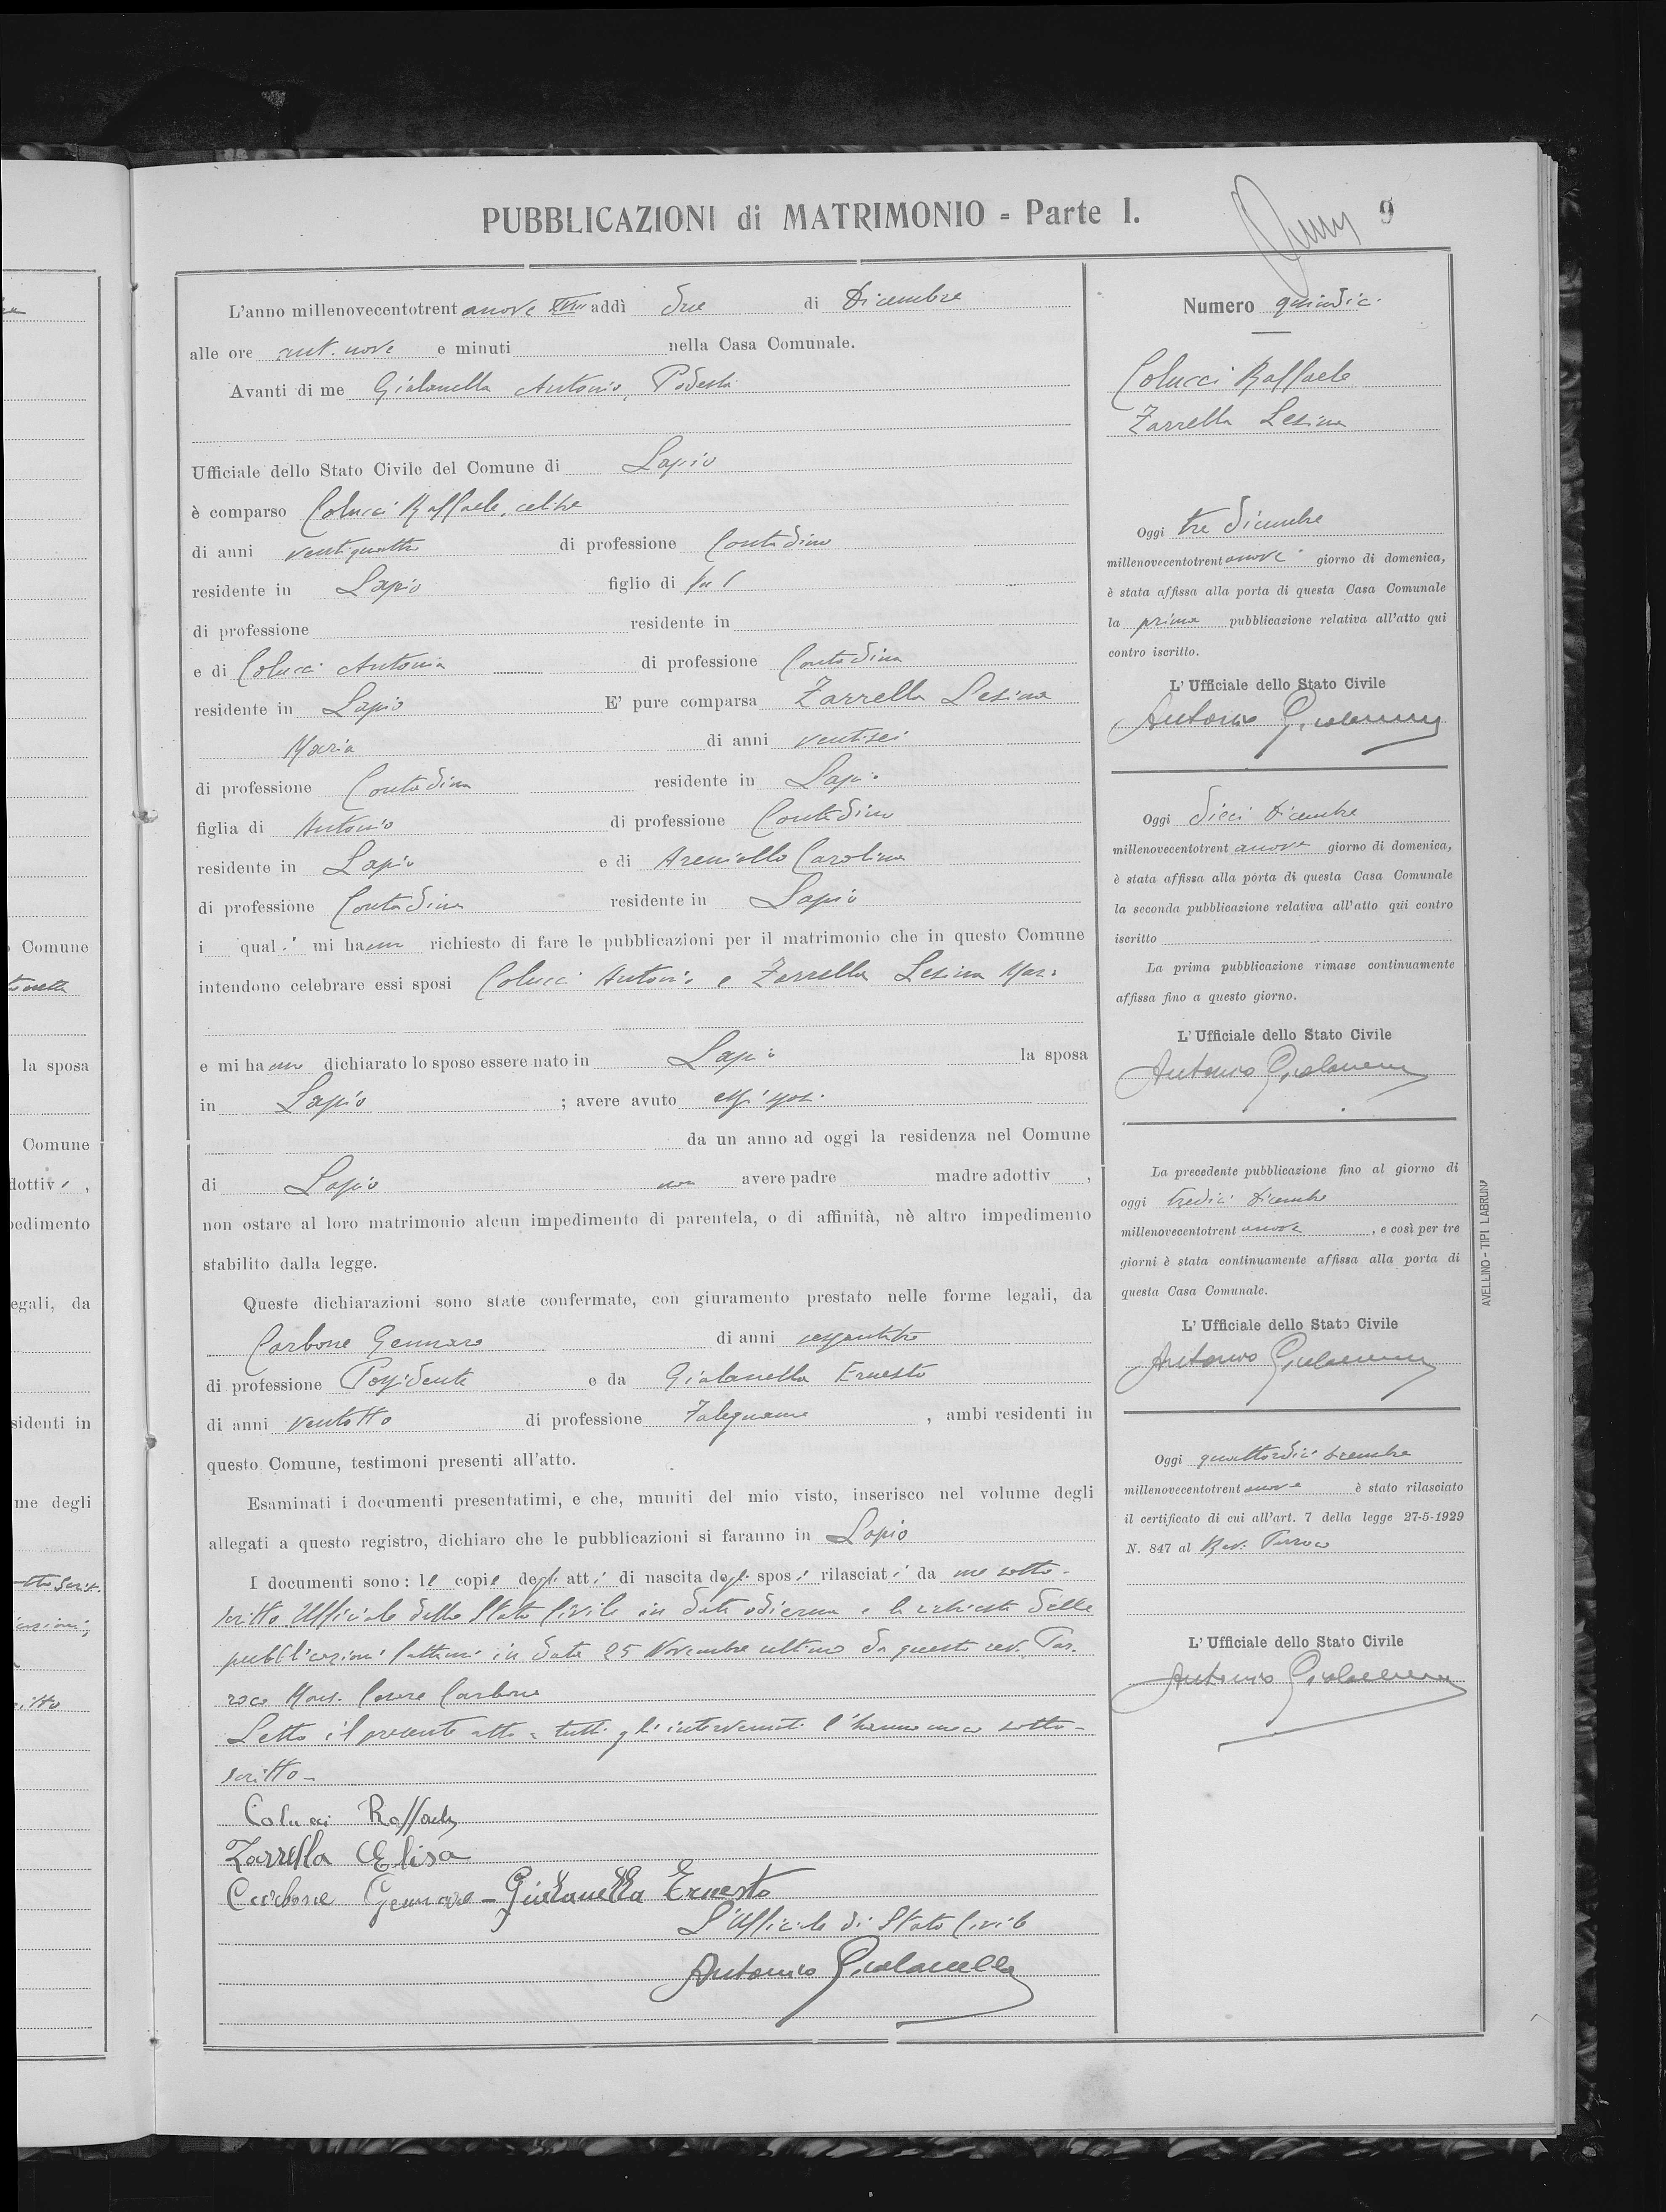 PUBBLICAZIONI di MATRIMONIO - Parte I.
9
L'anno millenovecentotrentanove XVIII addì due di Dicembre
alle ore ant. nove e minuti nella Casa Comunale.
Avanti di me Gialanella Antonio, Podestà
Ufficiale dello Stato Civile del Comune di Lapio
è comparso Colucci Raffaele, celibe
di anni ventiquattro di professione Contadino
residente in Lapio figlio di
di professione residente in
e di Colucci Antonia di professione Contadina
residente in Lapio E' pure comparsa Zarrella Lesina
Maria di anni ventisei
di professione Contadina residente in Lapio
figlia di Antonio di professione Contadino
residente in Lapio e di Areniello Carolina
di professione Contadina residente in Lapio
i quali mi hanno richiesto di fare le pubblicazioni per il matrimonio che in questo Comune
intendono celebrare essi sposi Colucci Antonio e Zarrella Lesina Mar.
e mi hanno dichiarato lo sposo essere nato in Lapio la sposa
in Lapio ; avere avuto essi sposi
da un anno ad oggi la residenza nel Comune
di Lapio non avere padre madre adottiv ,
non ostare al loro matrimonio alcun impedimento di parentela, o di affinità, nè altro impedimento
stabilito dalla legge.
Queste dichiarazioni sono state confermate, con giuramento prestato nelle forme legali, da
Carbone Gennaro di anni sessantatre
di professione Possidente e da Gialanella Ernesto
di anni ventotto di professione Falegname , ambi residenti in
questo Comune, testimoni presenti all'atto.
Esaminati i documenti presentatimi, e che, muniti del mio visto, inserisco nel volume degli
allegati a questo registro, dichiaro che le pubblicazioni si faranno in Lapio
I documenti sono: le copie degli atti di nascita degli sposi rilasciati da me sotto-
scritto Ufficiale dello Stato Civile in data odierna e la richiesta delle
pubblicazioni fattami in data 25 Novembre ultimo da questo rev. Par.
roco Mons. Carbone
Letto il presente atto a tutti gli intervenuti l'hanno meco sotto-
scritto-
Colucci Raffaele
Zarrella Elisa
Carbone Gennaro - Gialanella Ernesto
L'Ufficiale di Stato Civile
Antonio Gialanella
Numero quindici
Colucci Raffaele
Zarrella Lesina
Oggi tre dicembre
millenovecentotrentanove giorno di domenica,
è stata affissa alla porta di questa Casa Comunale
la prima pubblicazione relativa all'atto qui
contro iscritto.
L'Ufficiale dello Stato Civile
Antonio Gialanella
Oggi dieci Dicembre
millenovecentotrentanove giorno di domenica,
è stata affissa alla porta di questa Casa Comunale
la seconda pubblicazione relativa all'atto qui contro
iscritto
La prima pubblicazione rimase continuamente
affissa fino a questo giorno.
L'Ufficiale dello Stato Civile
Antonio Gialanella
La precedente pubblicazione fino al giorno di
oggi tredici Dicembre
millenovecentotrentanove , e così per tre
giorni è stata continuamente affissa alla porta di
questa Casa Comunale.
L'Ufficiale dello Stato Civile
Antonio Gialanella
Oggi quattordici dicembre
millenovecentotrentanove è stato rilasciato
il certificato di cui all'art. 7 della legge 27-5-1929
N. 847 al Rev. Parroco
L'Ufficiale dello Stato Civile
Antonio Gialanella
AVELLINO - TIPI LABRUNA
Comune
la sposa
Comune
dottivi ,
pedimento
egali, da
sidenti in
me degli